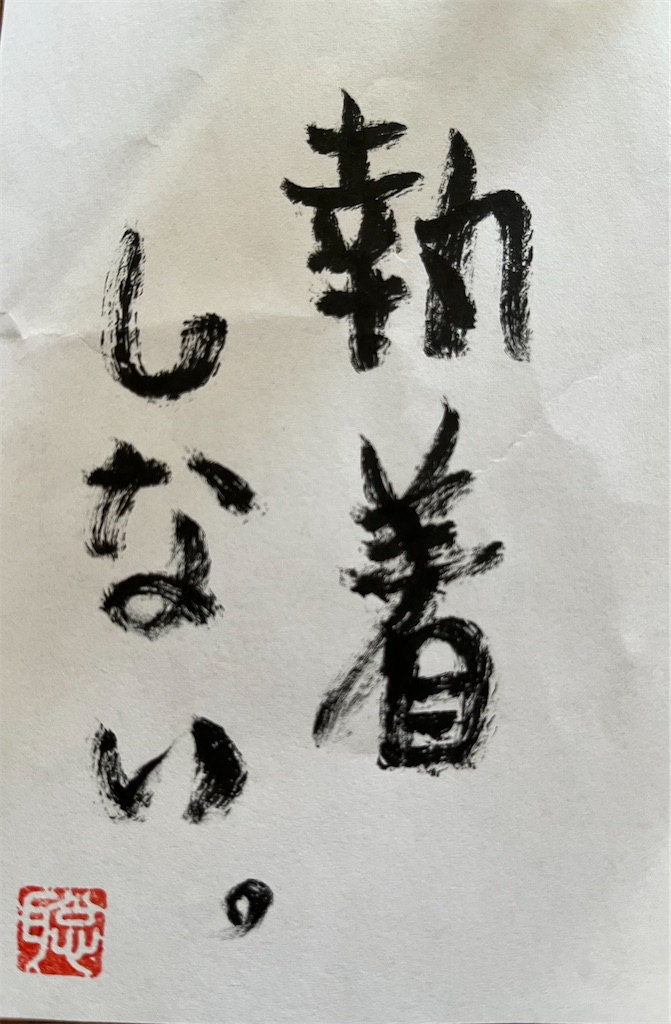 執着
しない。
聡